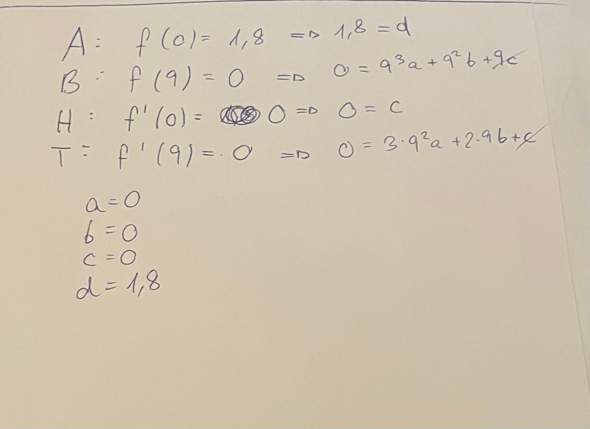 A: f(0) = 1,8 => 1,8 = d
B: f(9) = 0 => 0 = 9³a + 9²b + 9c
H: f'(0) = 0 => 0 = c
T: f'(9) = 0 => 0 = 3·9²a + 2·9b + c
a = 0
b = 0
c = 0
d = 1,8